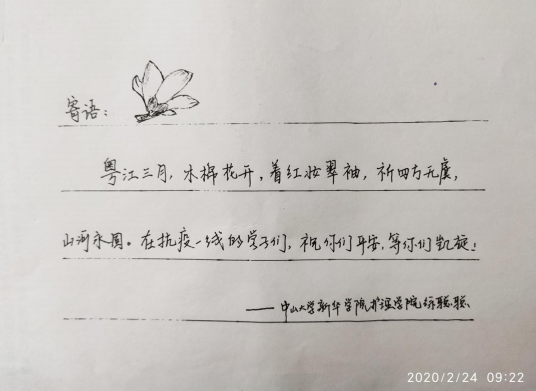 寄语：
粤江三月，木棉花开，着红妆翠袖，祈四方无虞，
山河永固。在抗疫一线的学子们，祝你们平安，等你们凯旋！
——中山大学新华学院护理学院 聪聪
2020/2/24 09:22